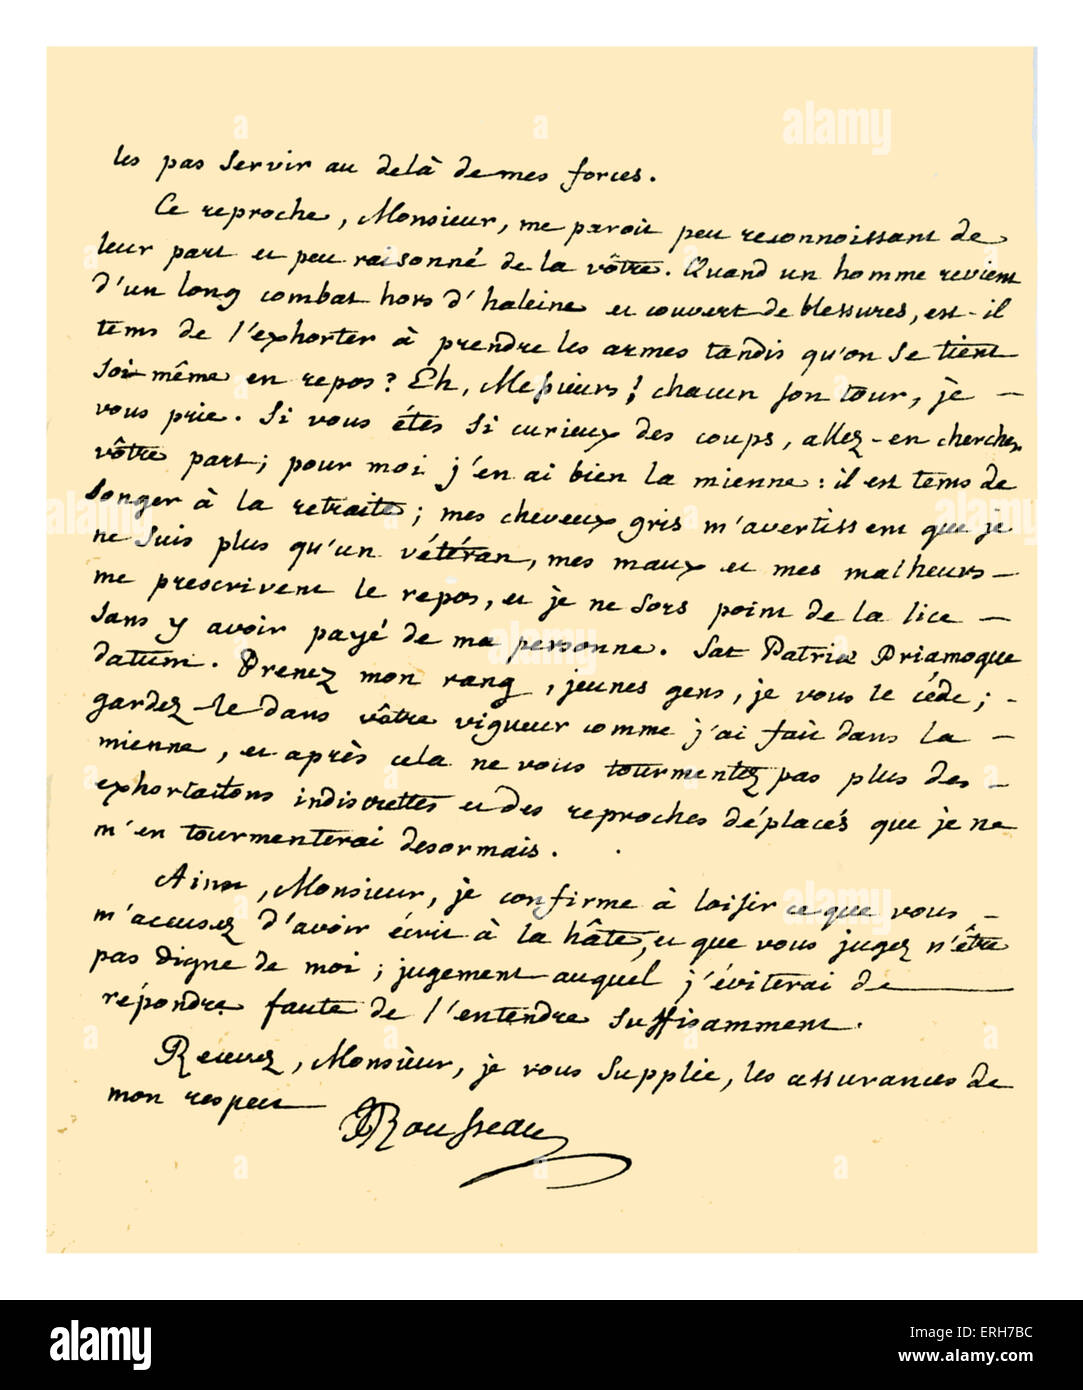 les pas servir au delà de mes forces.
Ce reproche, Monsieur, me paroit peu reconnoissant de
leur part et peu raisonné de la vôtre. Quand un homme revient
d'un long combat hors d'haleine et couvert de blessures, est-il
tems de l'exhorter à prendre les armes tandis qu'on se tient
soi même en repos? Eh, Messieurs! chacun son tour, je
vous prie. Si vous étes si curieux des coups, allez-en chercher
vôtre part; pour moi j'en ai bien la mienne: il est tems de
songer à la retraite; mes cheveux gris m'avertissent que je
ne suis plus qu'un vétéran, mes maux et mes malheurs
me prescrivent le repos, et je ne sors point de la lice
sans y avoir payé de ma personne. Sat Patriæ Priamoque
datum. Prenez mon rang, jeunes gens, je vous le céde;
gardez-le dans vôtre vigueur comme j'ai fait dans la
mienne, et après cela ne vous tourmentez pas plus des
exhortaitons indiscrettes et des reproches déplacés que je ne
m'en tourmenterai desormais.
Ainsi, Monsieur, je confirme à loisir ce que vous
m'accusez d'avoir écrit à la hâte, et que vous jugez n'être
pas digne de moi; jugement auquel j'éviterai de
répondre faute de l'entendre suffisamment.
Recevez, Monsieur, je vous supplie, les assurances de
mon respect
JJRousseau
alamy
Image ID: ERH7BC
www.alamy.com